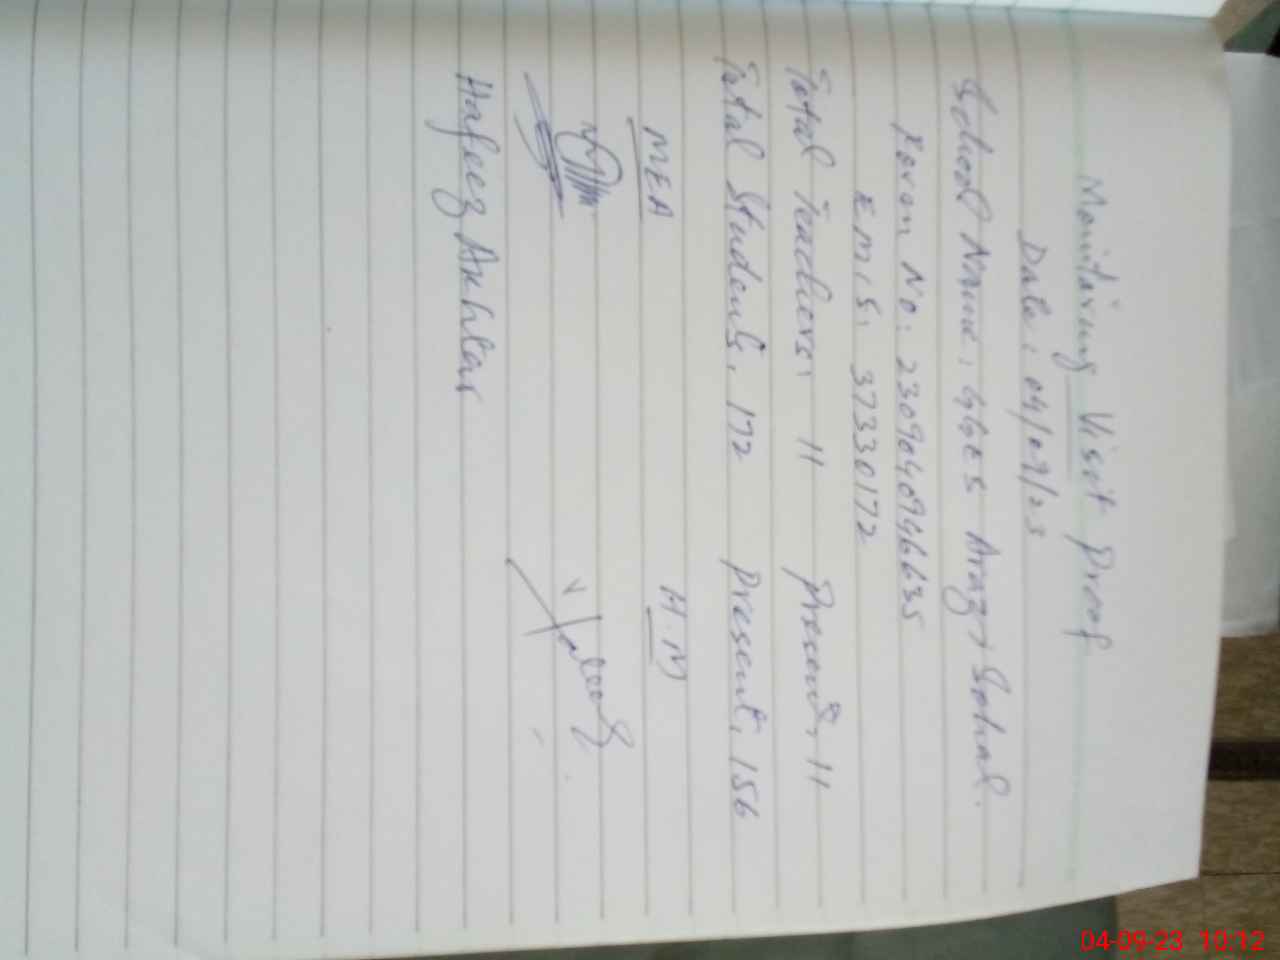 Monitoring Visit Proof
Date: 04/09/23
School Name: GGES Arazi Sohal.
Form No. 2309040946635
EMIS: 37330172
Total Teachers: 11 Present: 11
Total Students: 172 Present: 156
MEA H.M
Hafeez Akhtar
04-09-23 10:12